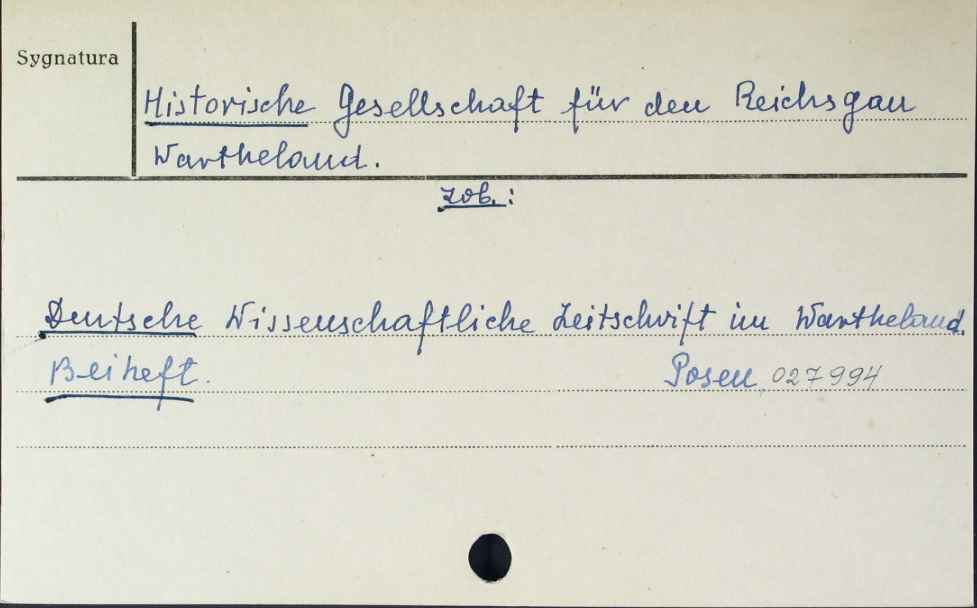 Sygnatura
Historische Gesellschaft für den Reichsgau
Wartheland.
zob.:
Deutsche Wissenschaftliche Zeitschrift im Wartheland.
Beiheft. Posen 027994